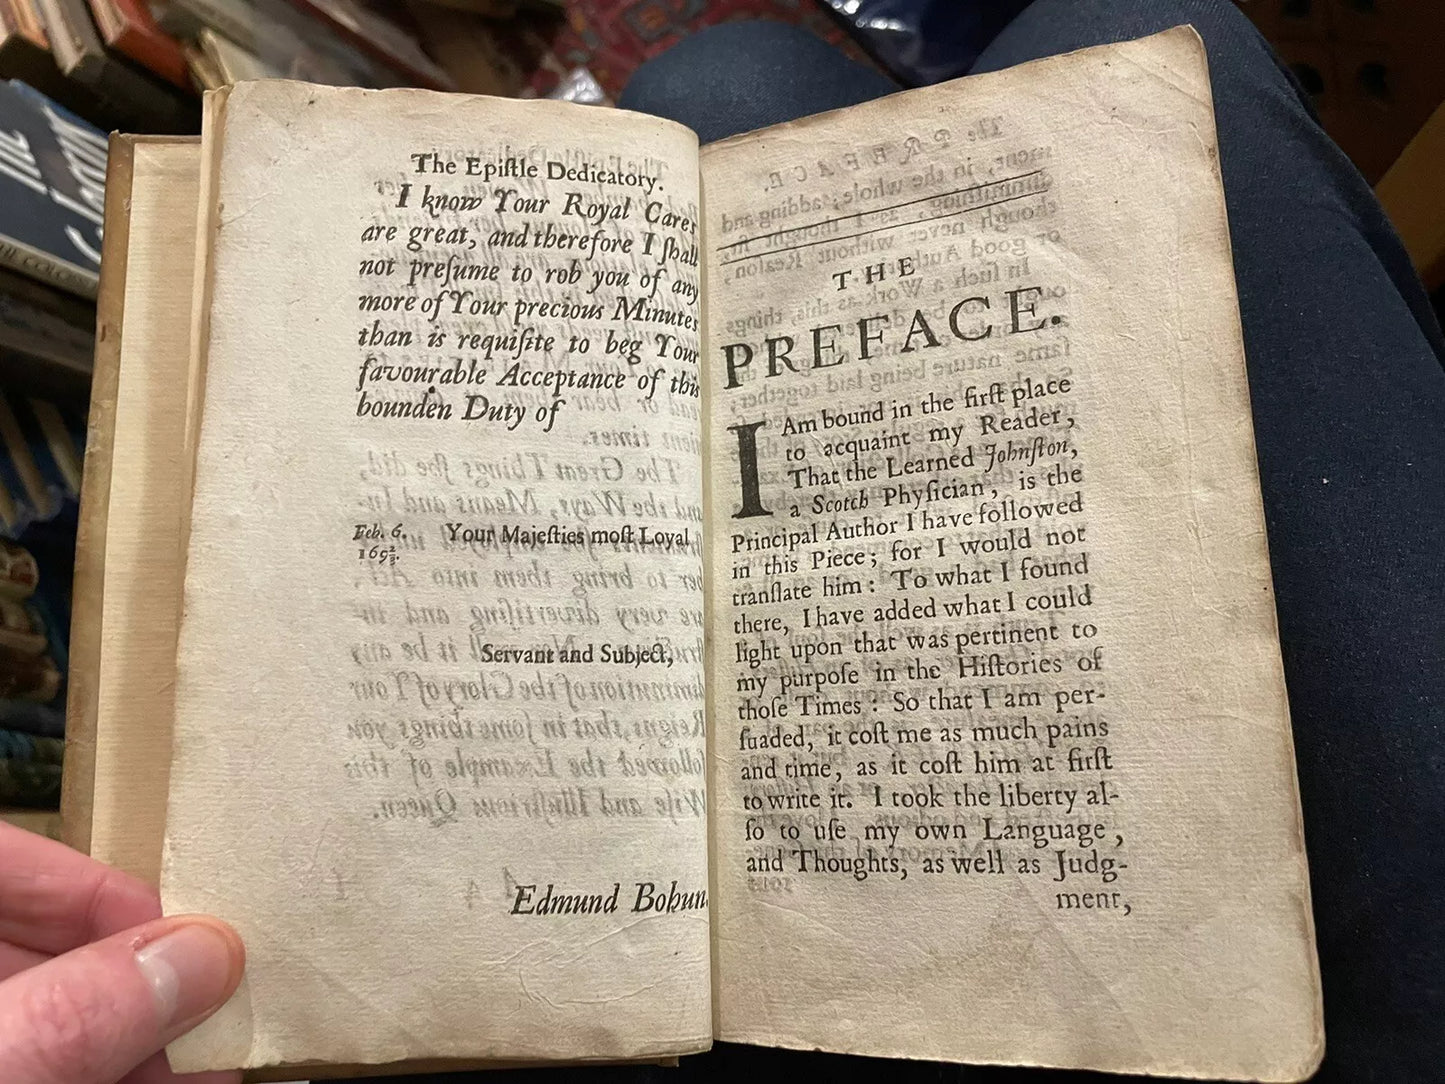 The Epiſtle Dedicatory.
I know Your Royal Cares
are great, and therefore I ſhall
not preſume to rob you of any
more of Your precious Minutes
than is requiſite to beg Your
favourable Acceptance of this
bounden Duty of
Feb. 6.
169⅔.
Your Majeſties moſt Loyal
Servant and Subject,
Edmund Bohun.
THE
PREFACE.
I Am bound in the firſt place
to acquaint my Reader,
That the Learned Johnſton,
a Scotch Phyſician, is the
Principal Author I have followed
in this Piece; for I would not
tranſlate him: To what I found
there, I have added what I could
light upon that was pertinent to
my purpoſe in the Hiſtories of
thoſe Times: So that I am per-
ſuaded, it coſt me as much pains
and time, as it coſt him at firſt
to write it. I took the liberty al-
ſo to uſe my own Language,
and Thoughts, as well as Judg-
ment,